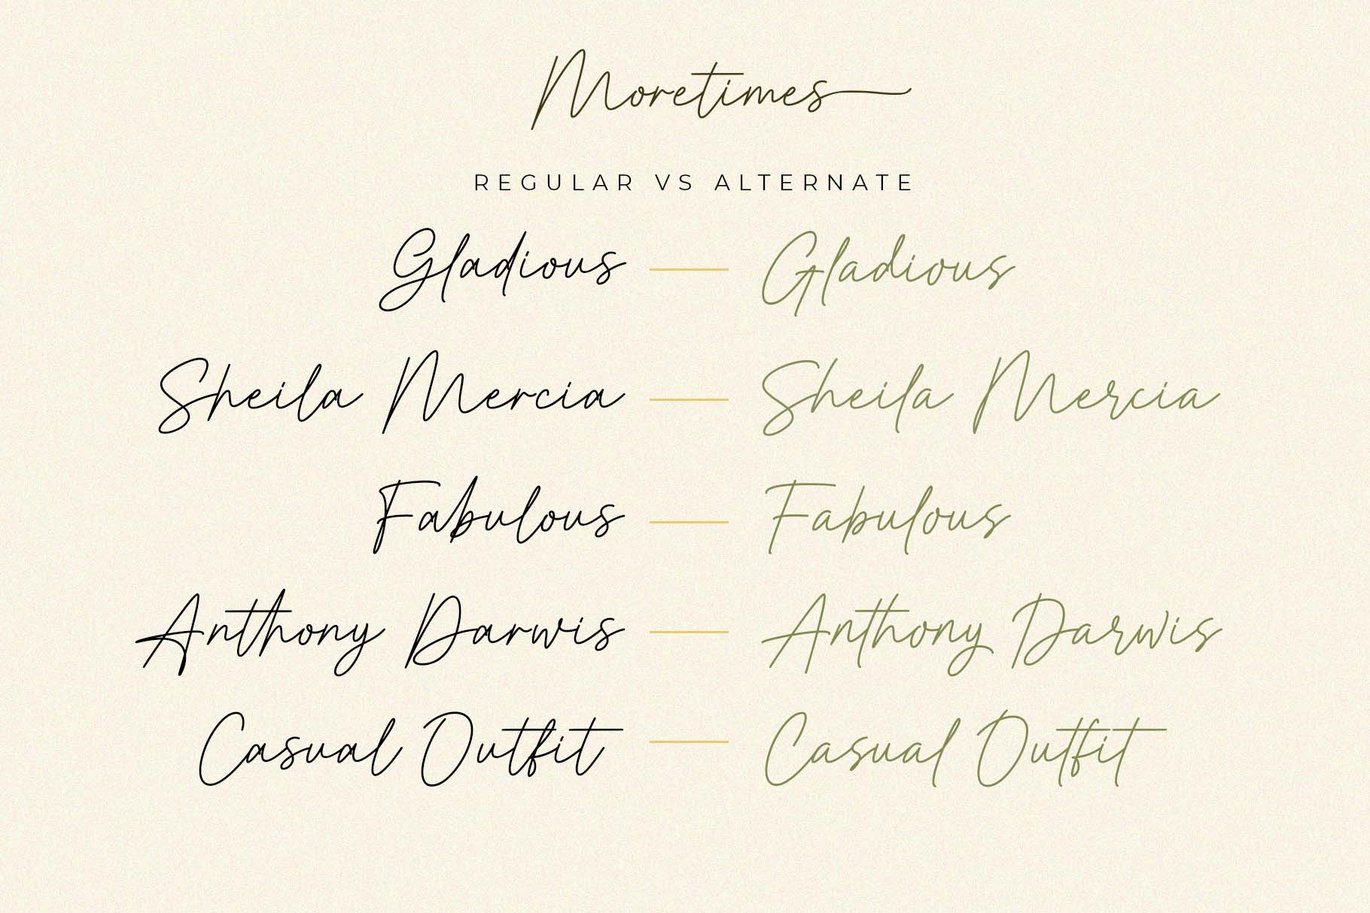 Moretimes
REGULAR VS ALTERNATE
Gladious Gladious
Sheila Mercia Sheila Mercia
Fabulous Fabulous
Anthony Darwis Anthony Darwis
Casual Outfit Casual Outfit